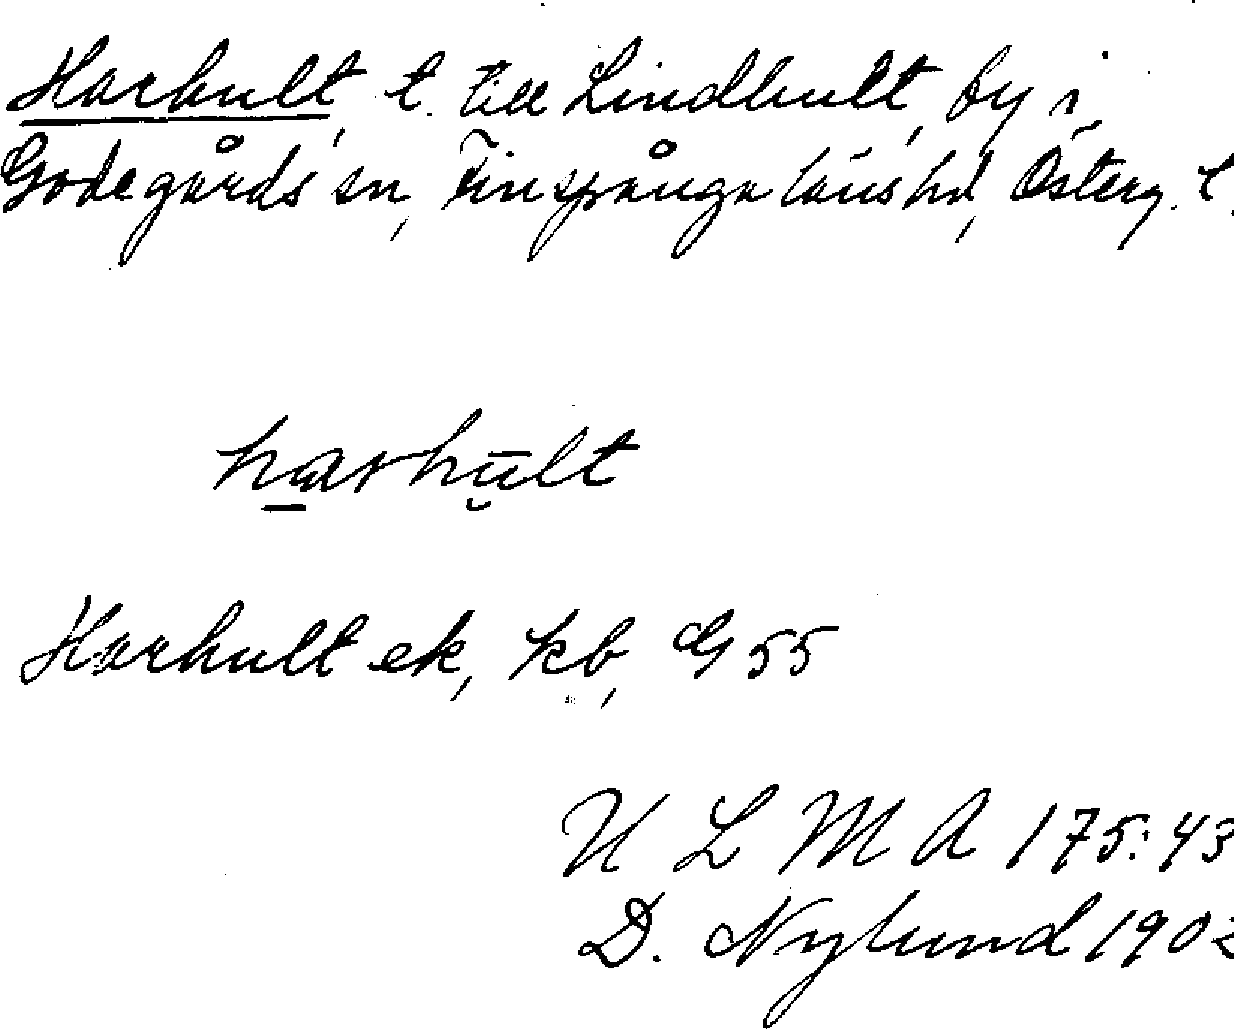 Harhult, t. till Lindhult, by i
Godegårds sn, Finspånga läns hd, Österg. l.
harhult
Harhult ek, kb, G 55
U L M A 175:43
D. Nylund 1902